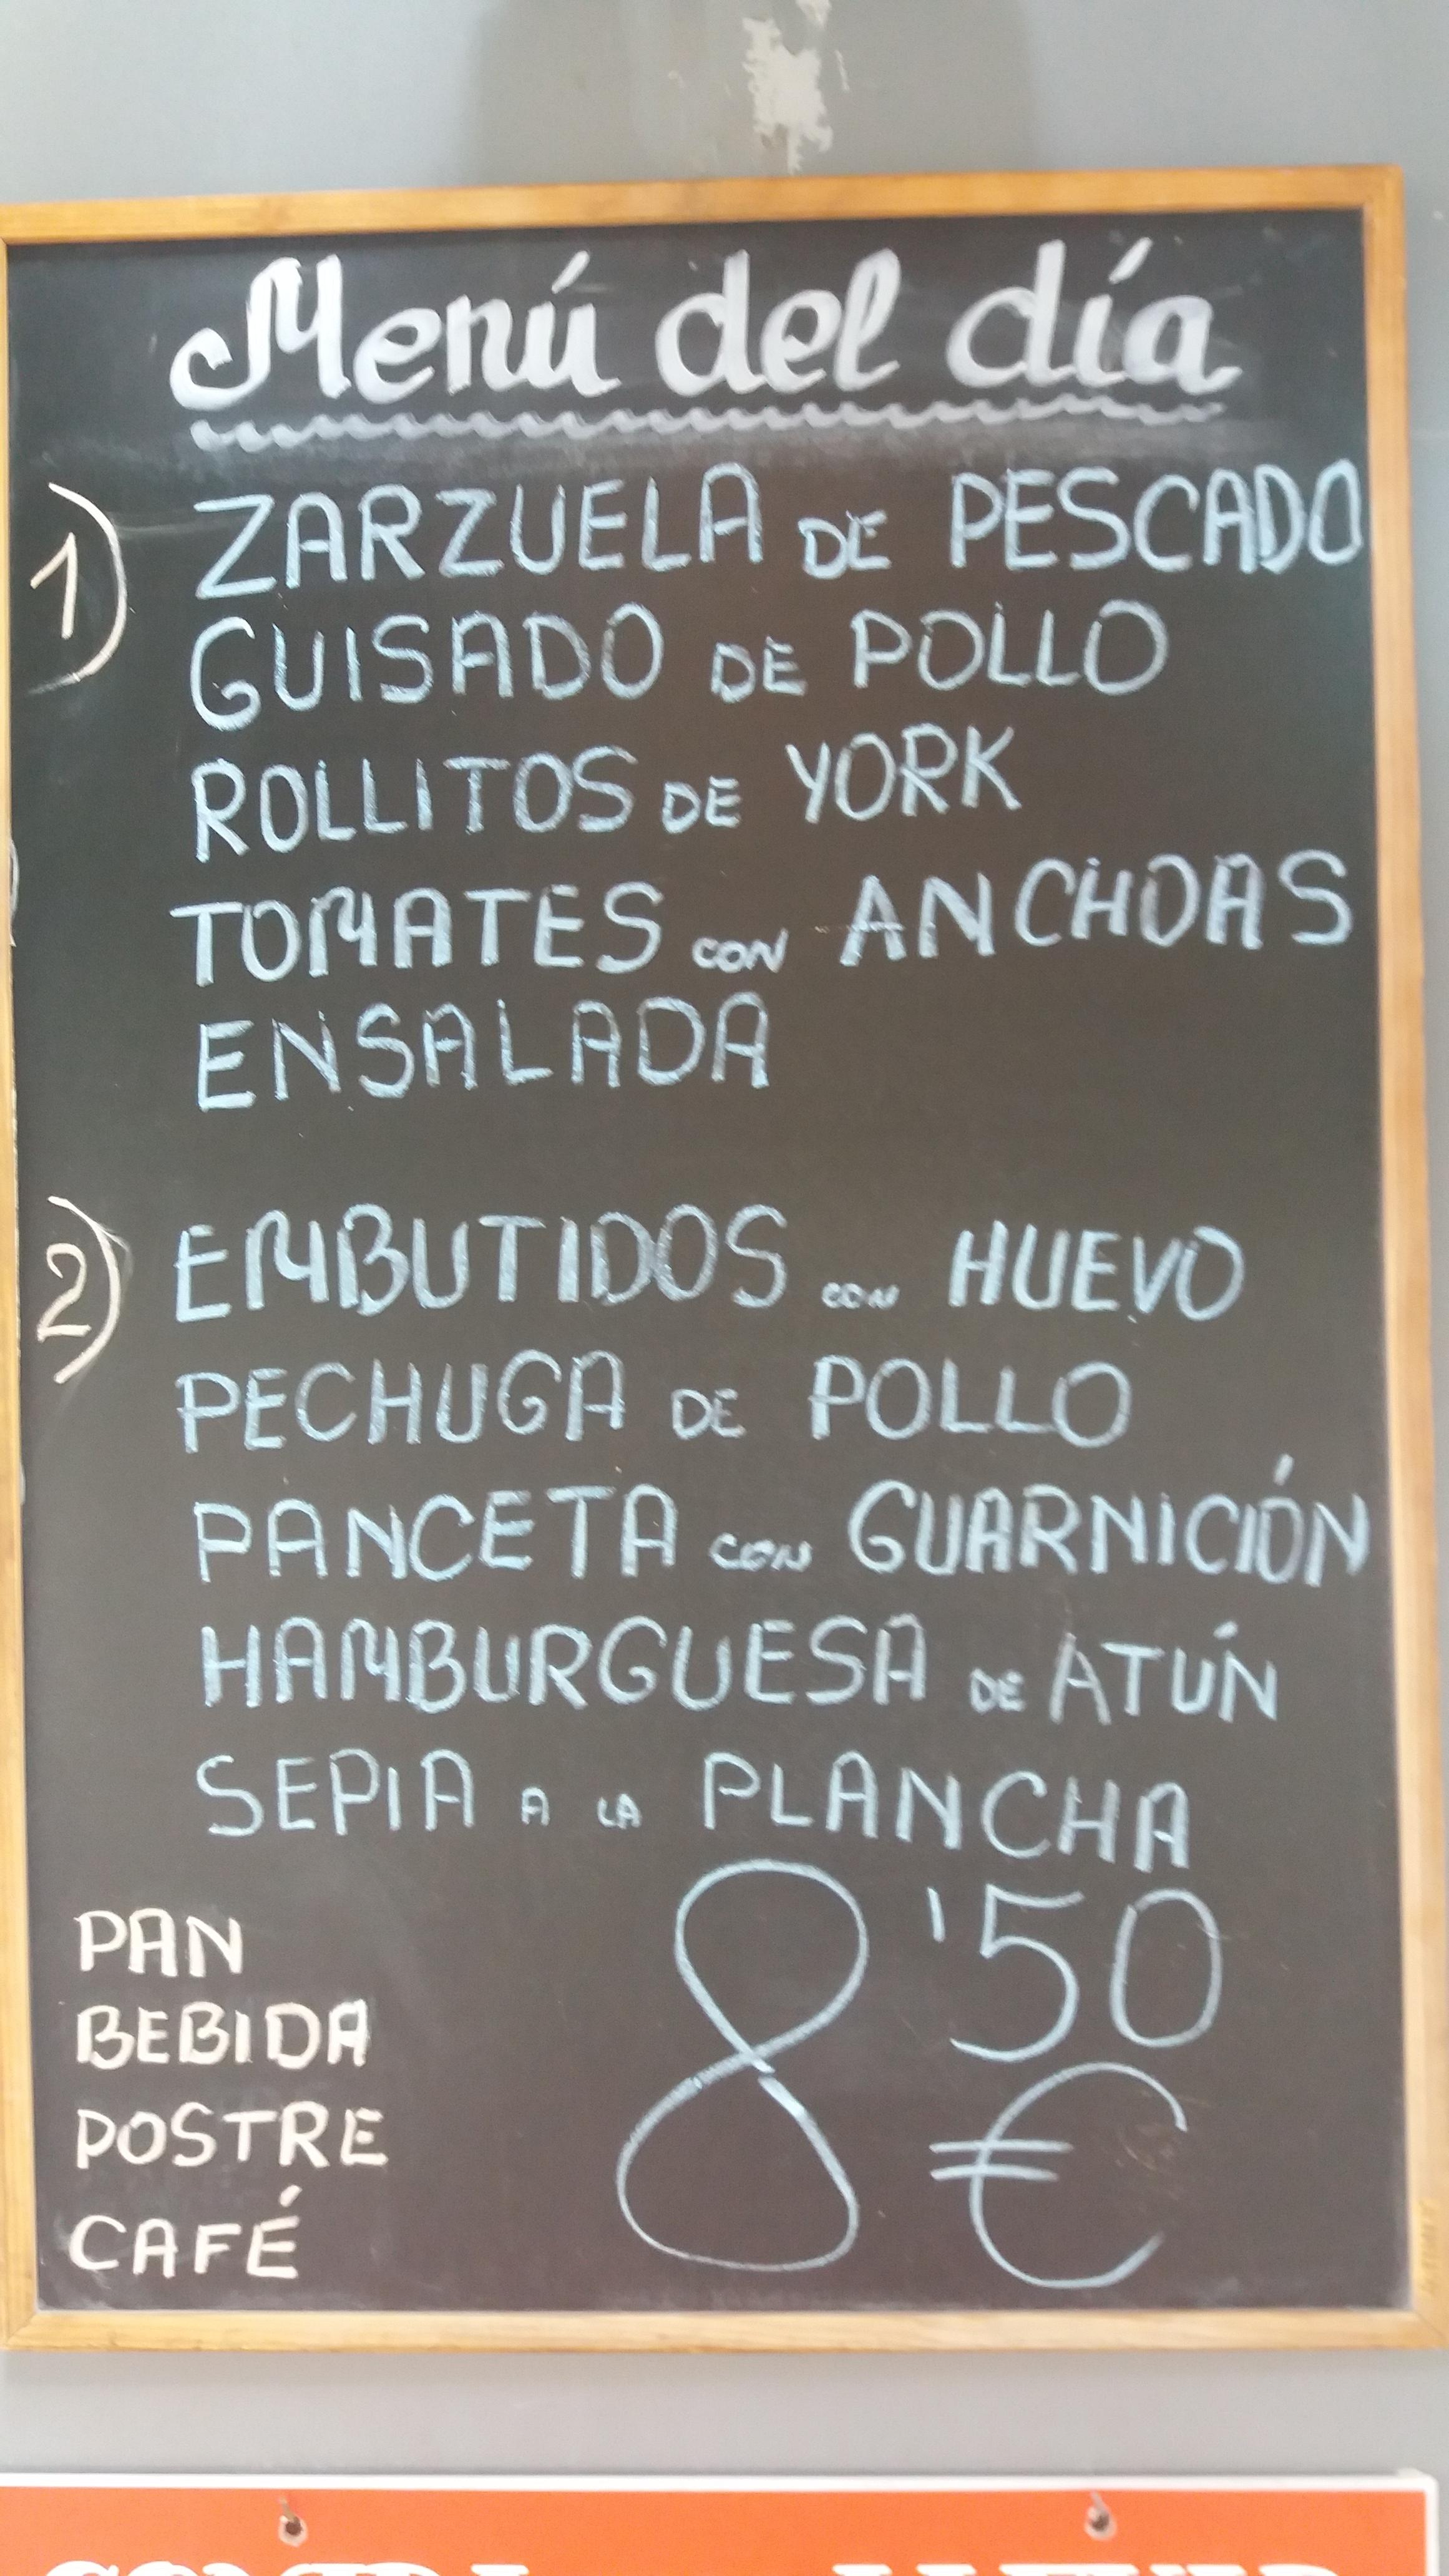 Menú del día
1) ZARZUELA DE PESCADO
GUISADO DE POLLO
ROLLITOS DE YORK
TOMATES CON ANCHOAS
ENSALADA
2) EMBUTIDOS CON HUEVO
PECHUGA DE POLLO
PANCETA CON GUARNICIÓN
HAMBURGUESA DE ATÚN
SEPIA A LA PLANCHA
PAN
BEBIDA
POSTRE
CAFÉ
8'50
€